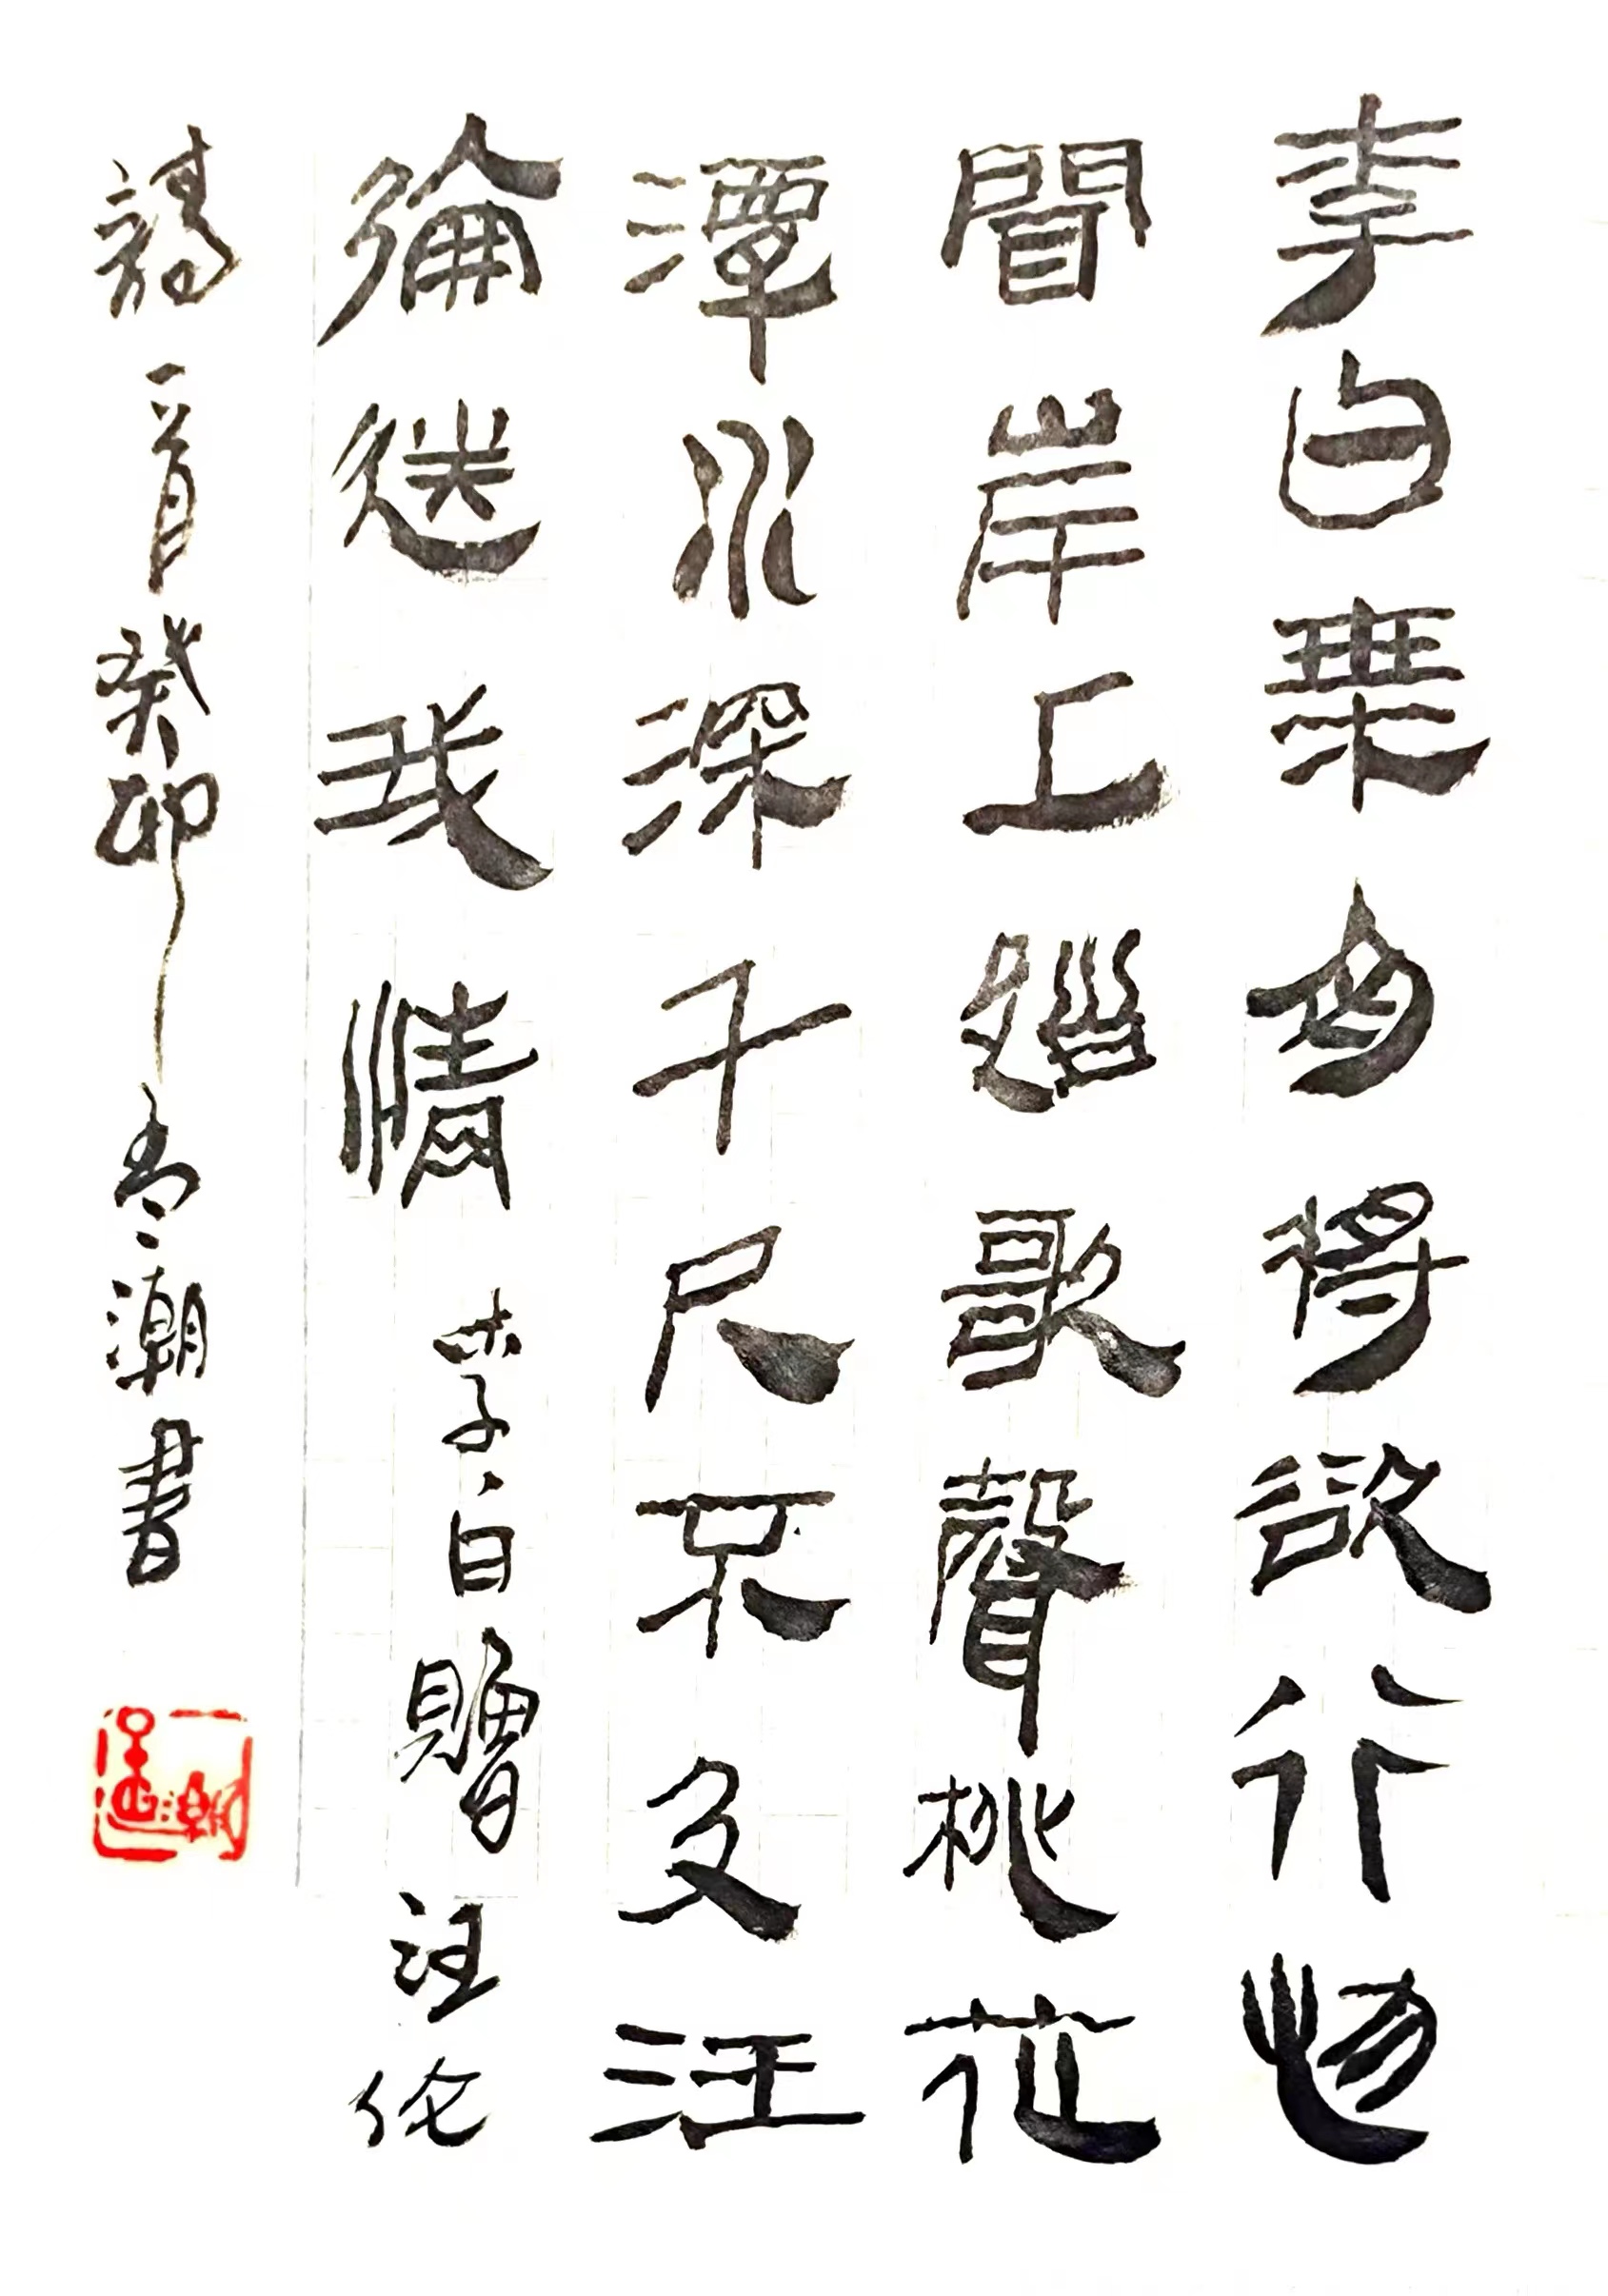 李白乘舟將欲行忽
聞岸上踏歌聲桃花
潭水深千尺不及汪
倫送我情 李白贈汪伦
詩一首癸卯潮書